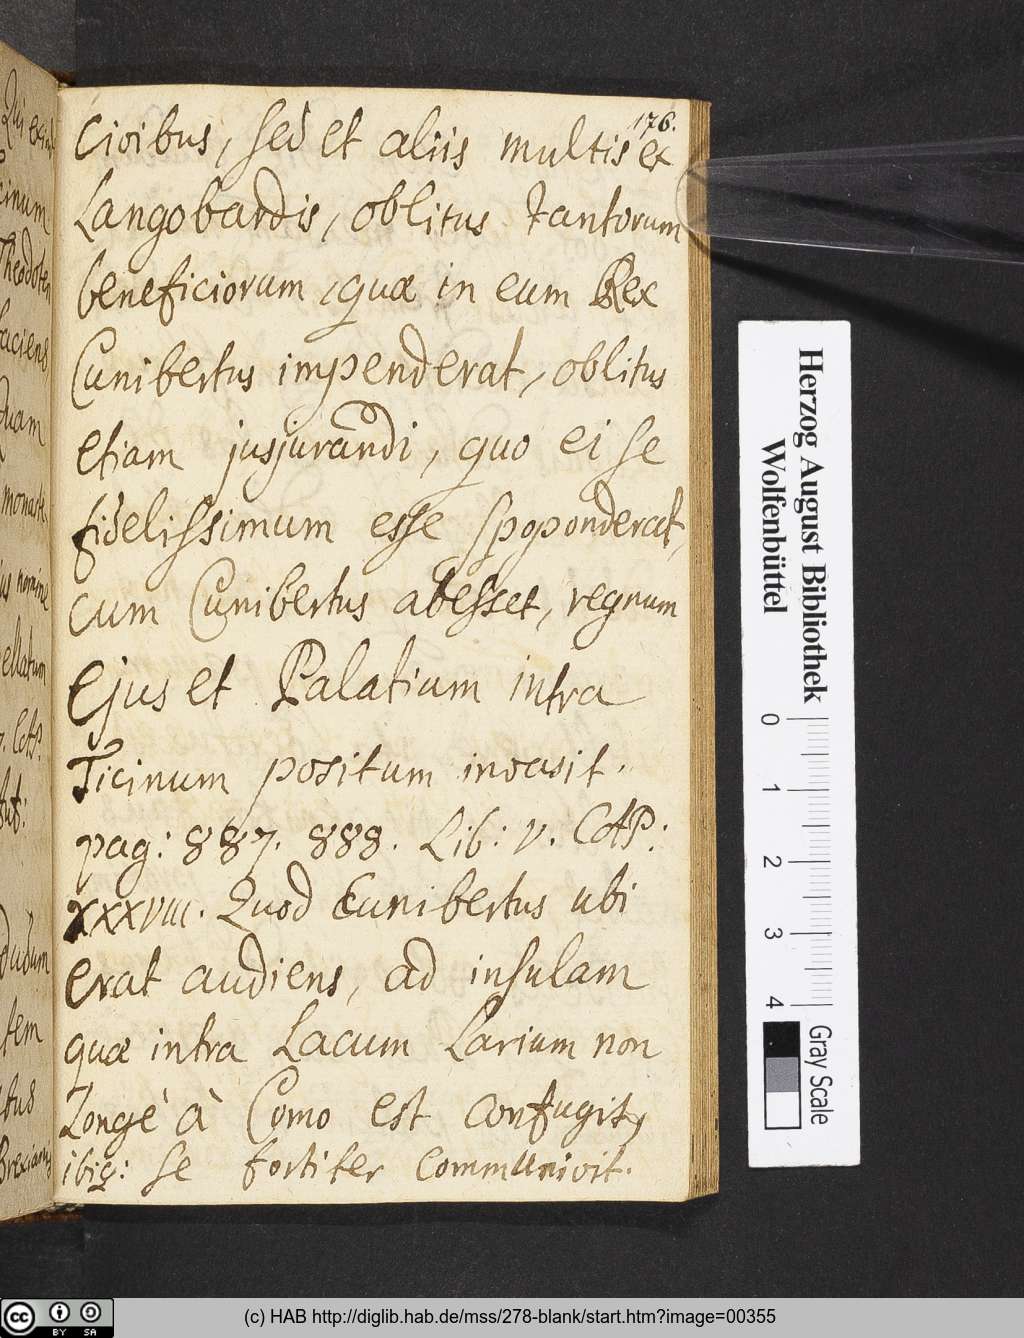 176.
civibus, sed et aliis multis ex
Langobardis, oblitus tantorum
beneficiorum, quæ in eum Rex
Cunibertus impenderat, oblitus
etiam jusjurandi, quo ei se
fidelissimum esse spoponderat,
cum Cunibertus abesset, regnum
ejus et Palatium intra
Ticinum positum invasit.
pag: 887. 888. Lib: V. CAP:
XXXVIII. Quod Cunibertus ubi
erat audiens, ad insulam
quæ intra Lacum Larium non
longè à Como est confugit,
ibiq: se fortiter communivit.
Theodoten
faciens,
quam
nomine
ellatum
CAP.
dudum
tem
Herzog August Bibliothek
Wolfenbüttel
0 1 2 3 4
Gray Scale
cc BY SA
(c) HAB http://diglib.hab.de/mss/278-blank/start.htm?image=00355